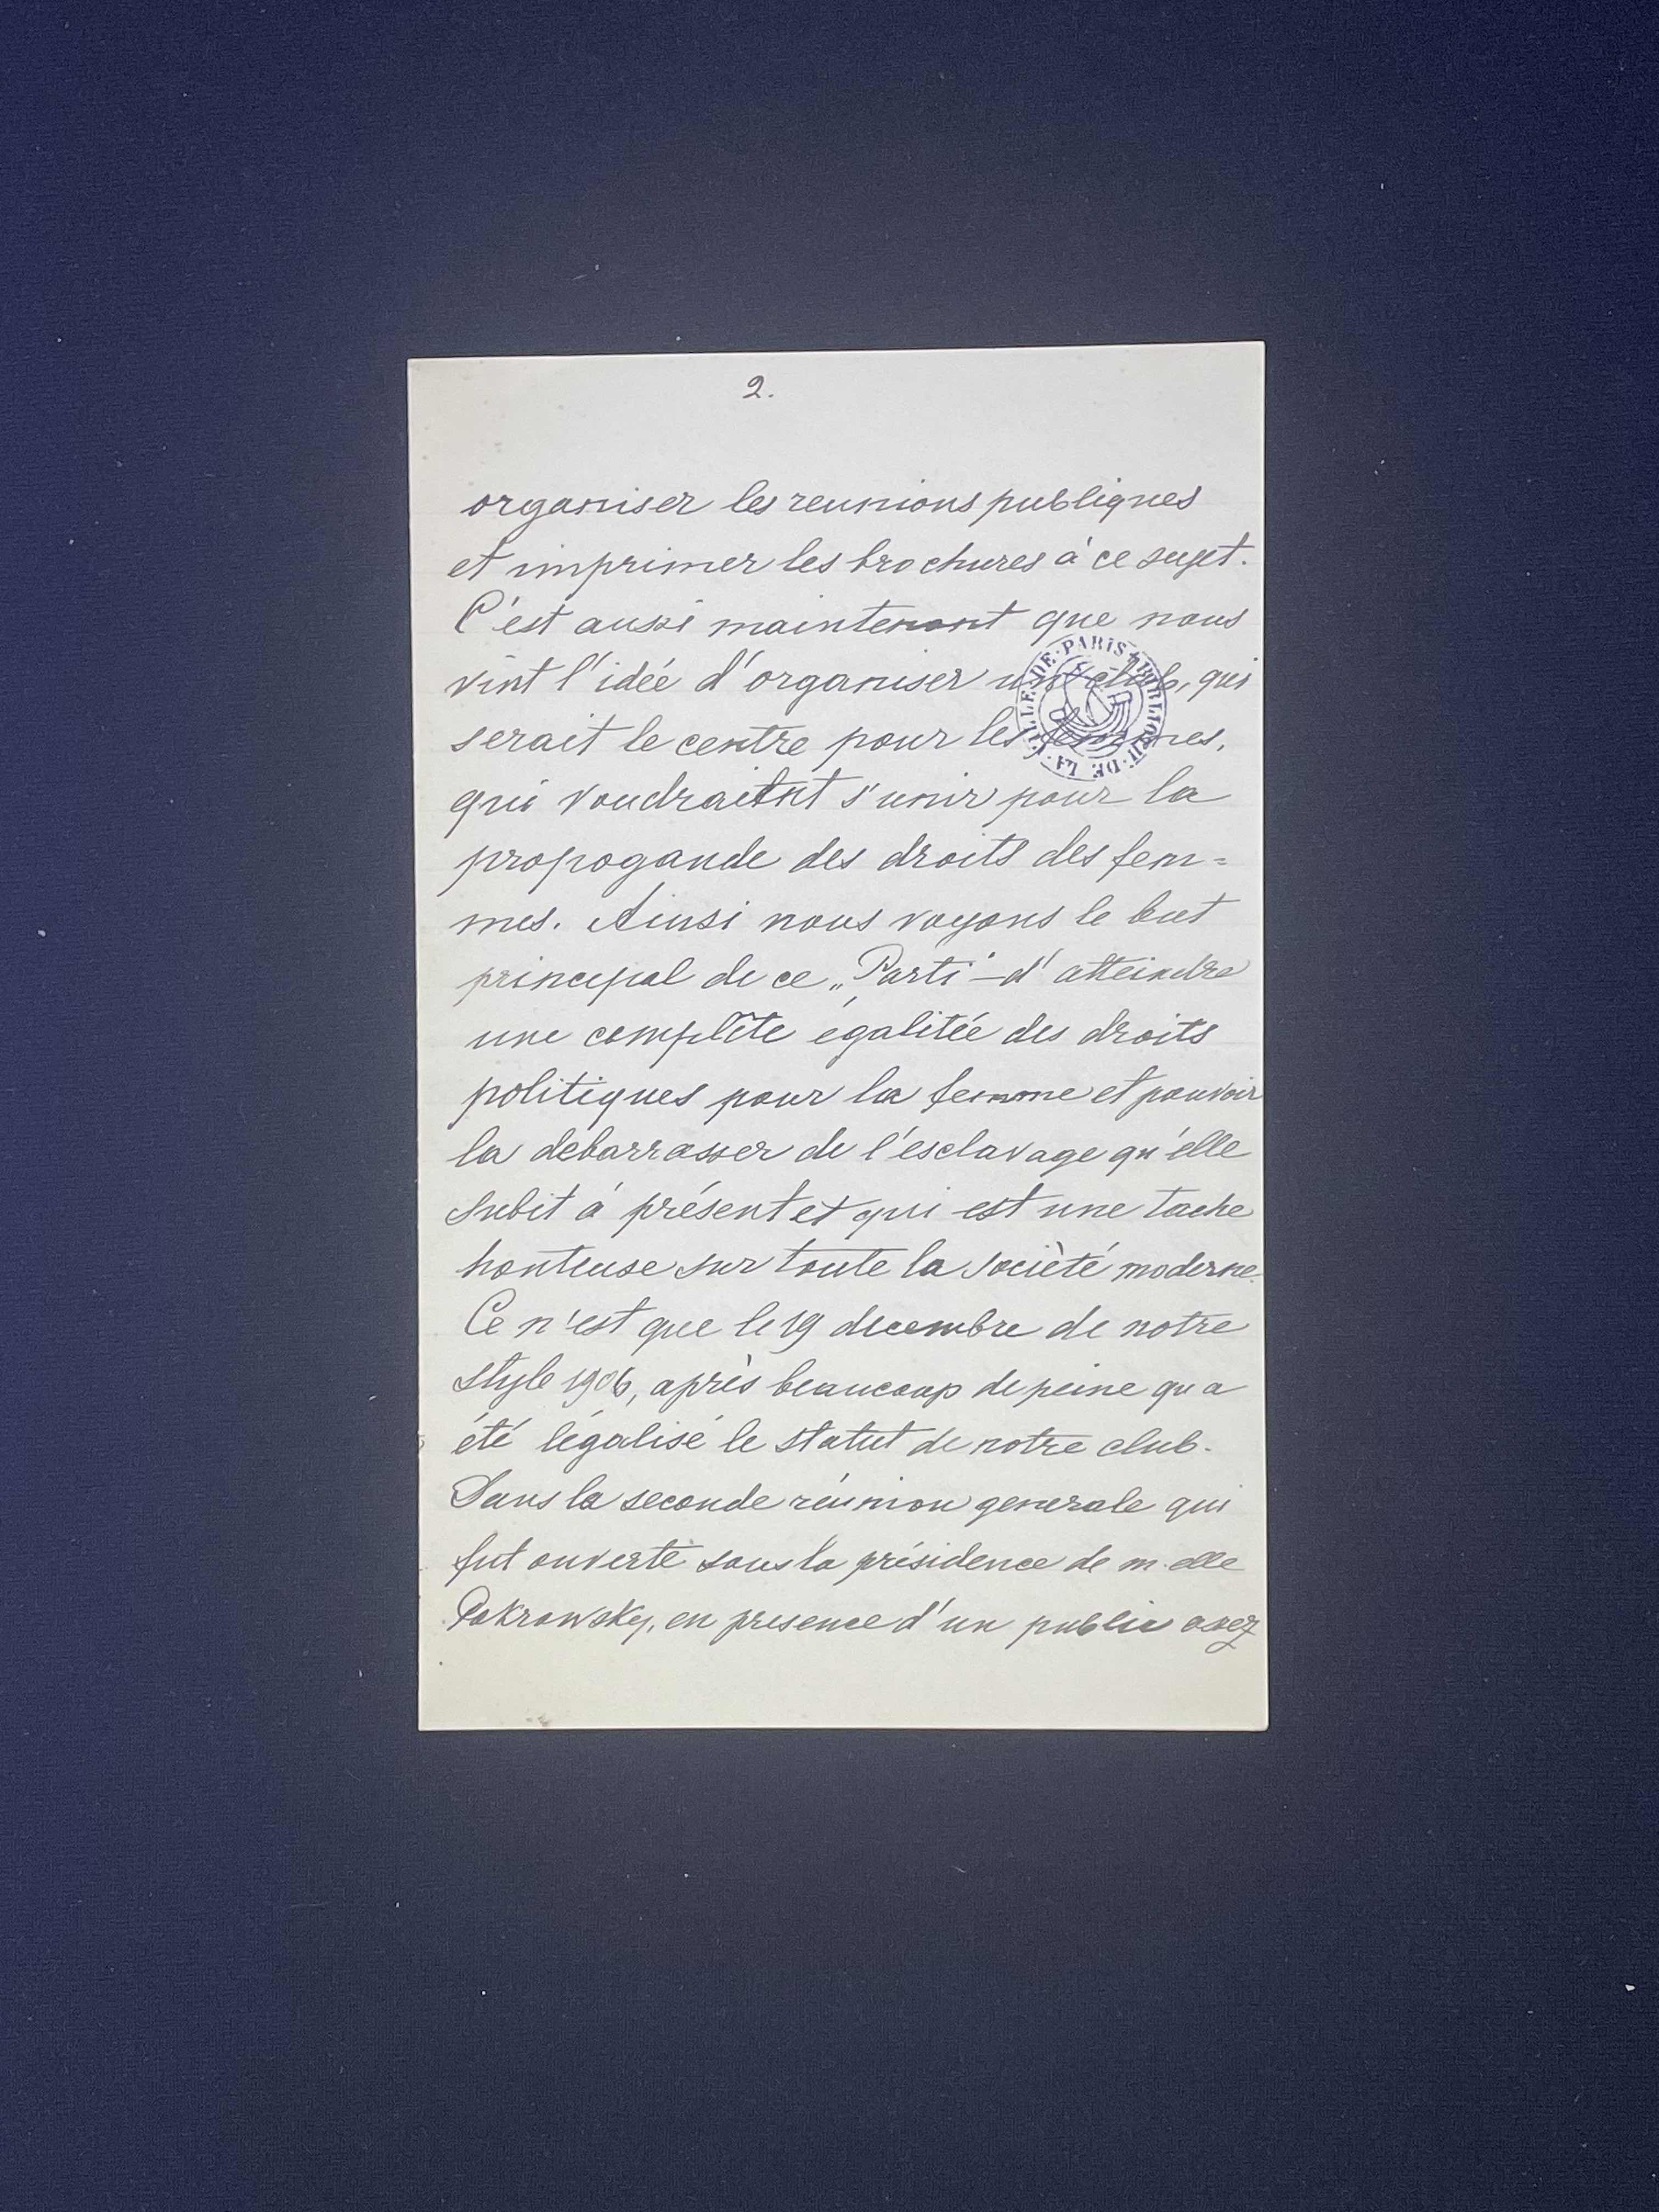 2.
organiser les reunions publiques
et imprimer les brochures à ce sujet.
C'est aussi maintenant que nous
vint l'idée d'organiser un club, qui
serait le centre pour les femmes,
qui voudraient s'unir pour la
propogande des droits des fem=
mes. Ainsi nous voyons le but
principal de ce „Parti"—d'atteindre
une complète égalitée des droits
politiques pour la femme et pouvoir
la debarrasser de l'esclavage qu'elle
subit à présent et qui est une tache
honteuse sur toute la société moderne.
Ce n'est que le 19 decembre de notre
style 1906, après beaucoup de peine qu'a
été légalisé le statut de notre club.
Dans la seconde réunion generale qui
fut ouverte sous la présidence de m-elle
Pokrowsky, en presence d'un public assez
VILLE DE PARIS